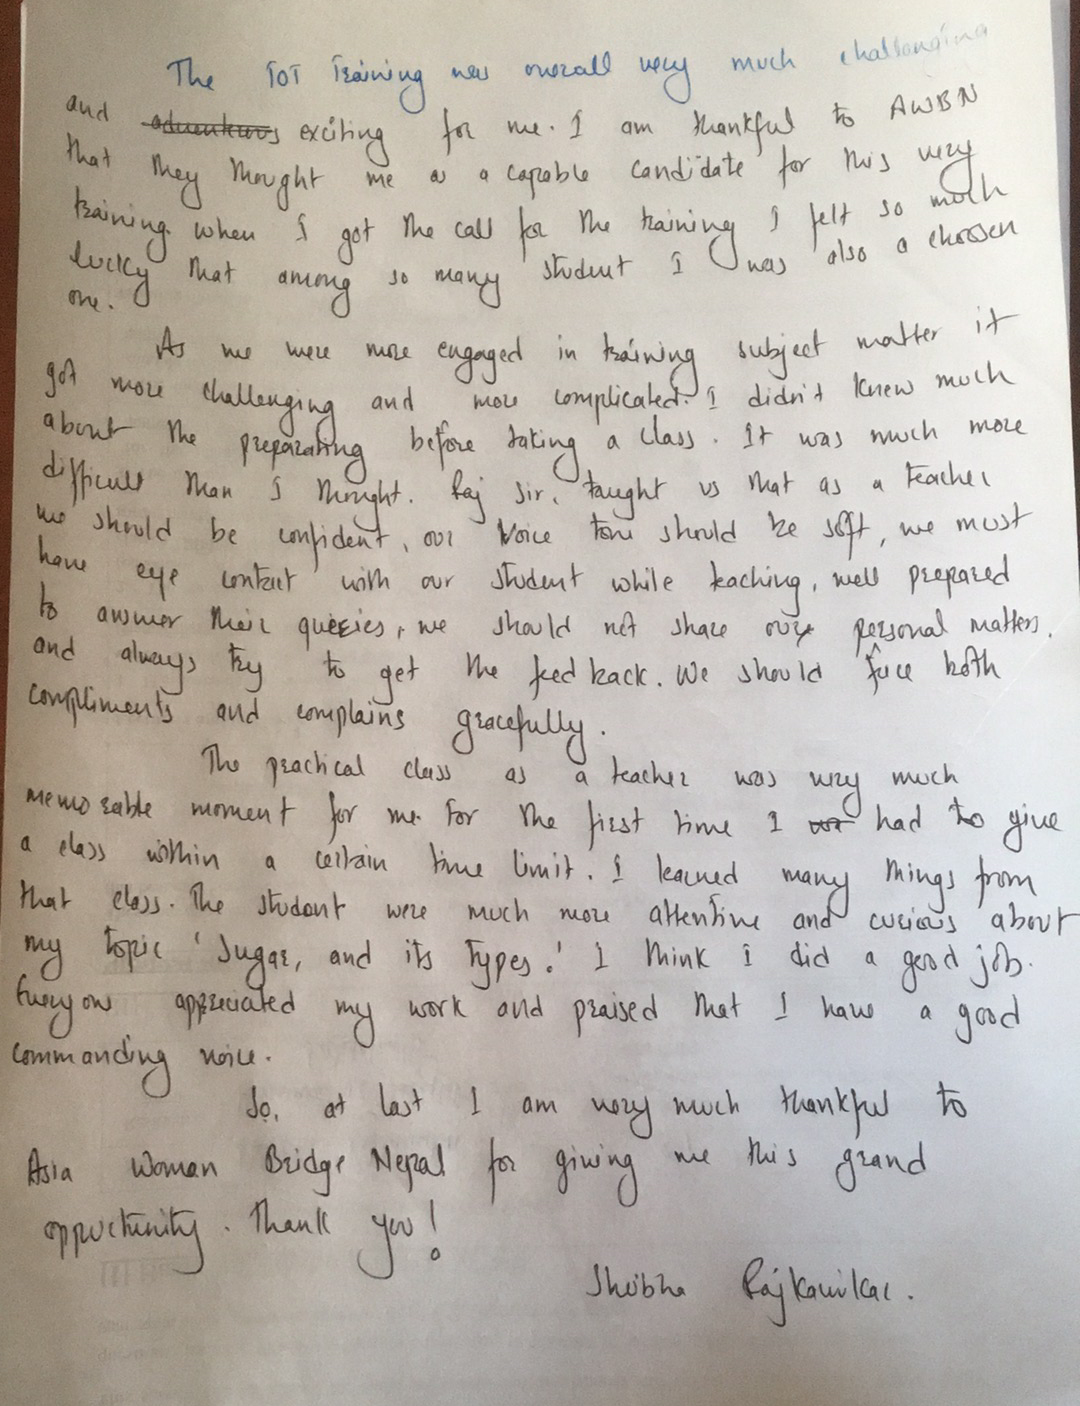 The TOT Training was overall very much challenging
and exciting for me. I am thankful to AWBN
that they thought me as a capable candidate for this very
training. when I got the call for the training I felt so much
lucky that among so many student I was also a choosen
one.
As we were more engaged in training subject matter it
got more challenging and more complicated. I didn't knew much
about the preparating before taking a class. It was much more
difficult than I thought. Raj sir, taught us that as a teacher
we should be confident, our voice tone should be soft, we must
have eye contact with our student while teaching, well prepared
to answer their queries, we should not share our personal matters.
and always try to get the feedback. We should face both
compliments and complains gracefully.
The practical class as a teacher was very much
memorable moment for me. For the first time I had to give
a class within a certain time limit. I learned many things from
that class. The student were much more attentive and curious about
my topic 'Sugar, and its types.' I think I did a good job.
Everyone appreciated my work and praised that I have a good
commanding voice.
So, at last I am very much thankful to
Asia Woman Bridge Nepal for giving me this grand
opportunity. Thank you!
Shobha Rajkarnikar.